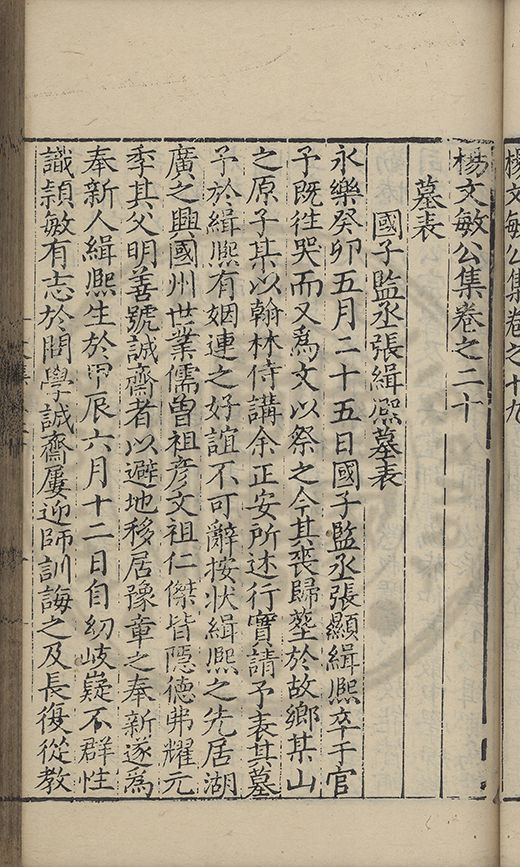 楊文敏公集卷之十九
楊文敏公集卷之二十
墓表
國子監丞張緝熈墓表
永樂癸卯五月二十五日國子監丞張顯緝熈卒于官
予既往哭而又爲文以祭之今其喪歸塟於故鄉某山
之原子某以翰林侍講余正安所述行實請予表其墓
予於緝熈有姻連之好誼不可辭按狀緝熈之先居湖
廣之興國州世業儒曽祖彦文祖仁傑皆隱德弗耀元
季其父明善號誠齋者以避地移居豫章之奉新遂爲
奉新人緝熈生於甲辰六月十二日自㓜岐嶷不群性
識頴敏有志於問學誠齋屢迎師訓誨之及長復從教